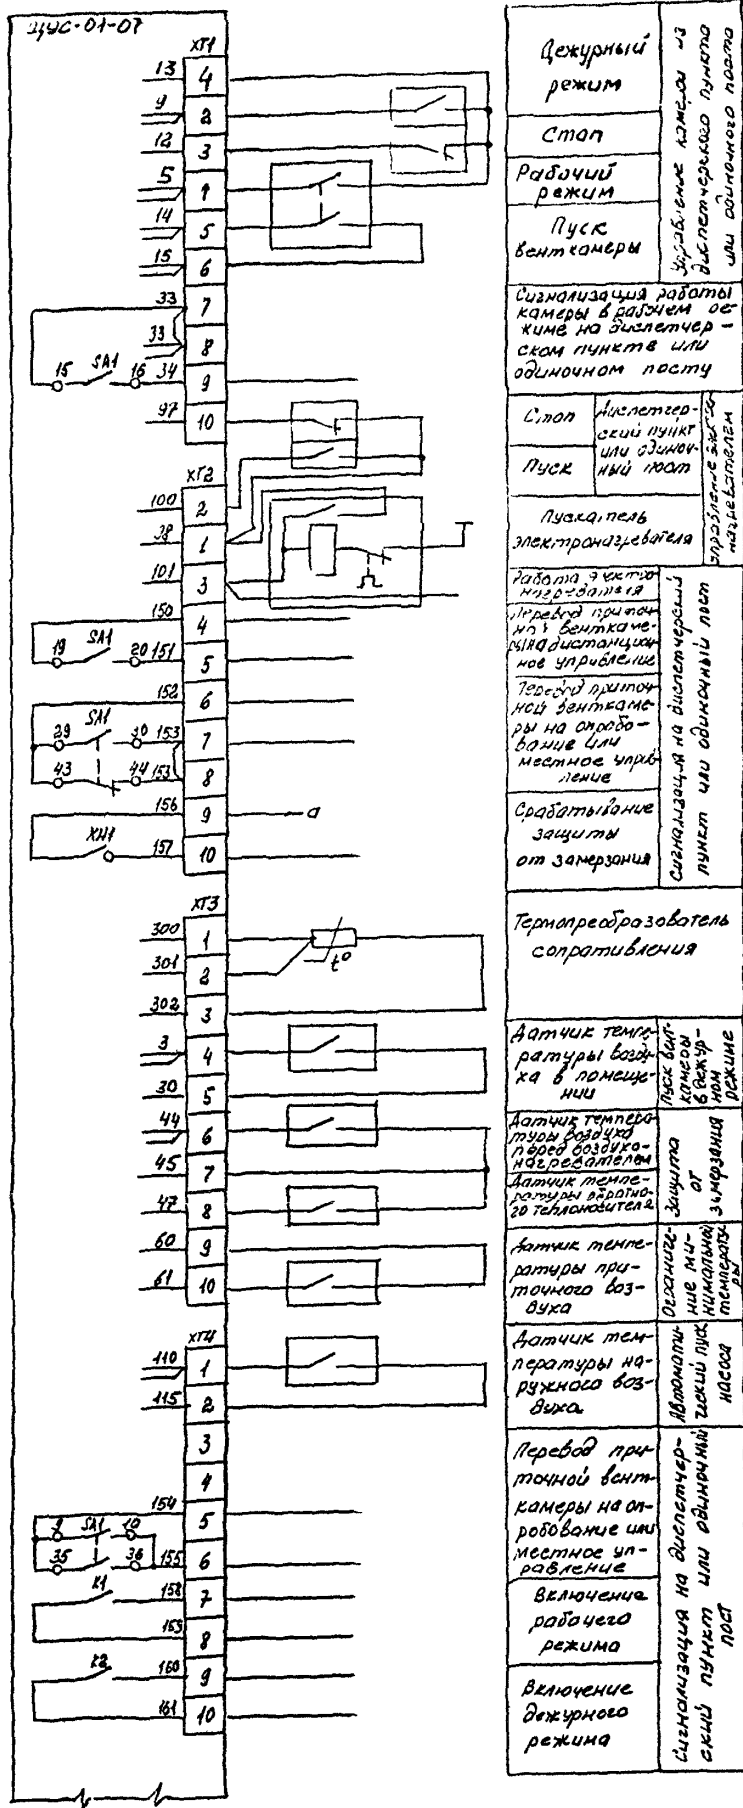 ЩУС-01-07
ХТ1
13 4
9 2
12 3
5 1
14 5
15 6
33 7
33 8
15 SA1 16 34 9
97 10
ХТ2
100 2
98 1
101 3
150 4
19 SA1 20 151 5
152 6
29 SA1 30 153 7
43 44 153 8
156 9 а
КН1 157 10
ХТ3
300 1
301 2
t°
302 3
3 4
30 5
44 6
45 7
47 8
60 9
61 10
ХТ4
110 1
115 2
3
4
154 5
9 SA1 10
35 36 155 6
К1 158 7
159 8
К2 160 9
161 10
Дежурный
режим
Стоп
Рабочий
режим
Пуск
венткамеры
Управление камерой из
диспетчерского пункта
или одиночного поста
Сигнализация работы
камеры в рабочем ре-
жиме на диспетчер-
ском пункте или
одиночном посту
Стоп
Пуск
Диспетчер-
ский пункт
или одиноч-
ный пост
Пускатель
электронагревателя
управление электро-
нагревателем
Работа электро-
нагревателя
Перевод приточ-
ной венткаме-
ры на дистанцион-
ное управление
Перевод приточ-
ной венткаме-
ры на опробо-
вание или
местное управ-
ление
Срабатывание
защиты
от замерзания
Сигнализация на диспетчерский
пункт или одиночный пост
Термопреобразователь
сопративления
Датчик темпе-
ратуры возду-
ха в помеще-
нии
Пуск вент-
камеры
в дежур-
ном
режиме
Датчик темпера-
туры воздуха
перед воздухо-
нагревателем
Датчик темпе-
ратуры обратно-
го теплоносителя
Защита
от
замерзания
Датчик темпе-
ратуры при-
точного воз-
духа
Ограниче-
ние ми-
нимальной
температу-
ры
Датчик тем-
пературы на-
ружного воз-
духа
Автомати-
ческий пуск
насоса
Перевод при-
точной вент-
камеры на оп-
робование или
местное уп-
равление
Включение
рабочего
режима
Включение
дежурного
режима
Сигнализация на диспетчер-
ский пункт или одиночный
пост